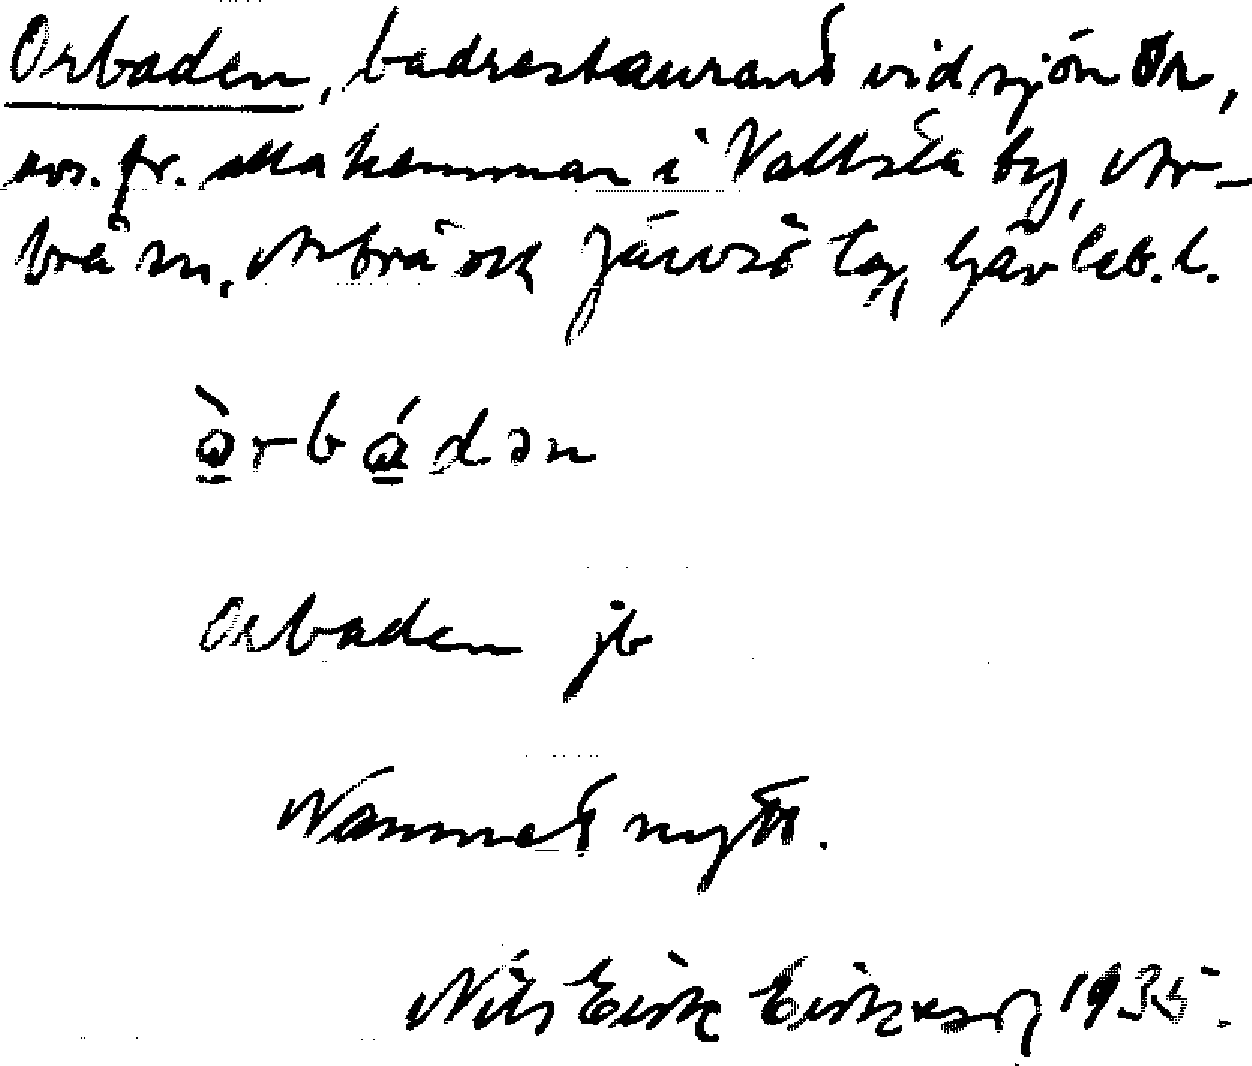 Orbaden, badrestaurant vid sjön Orn,
avs. fr. alla hemman i Vallsta by, Ar-
brå sn, Arbrå och Järvsö tg, Gävleb. l.
ò̱rbá̱dən
Orbaden jb
Namnet nytt.
Nils Eirik Eriksson 1935.